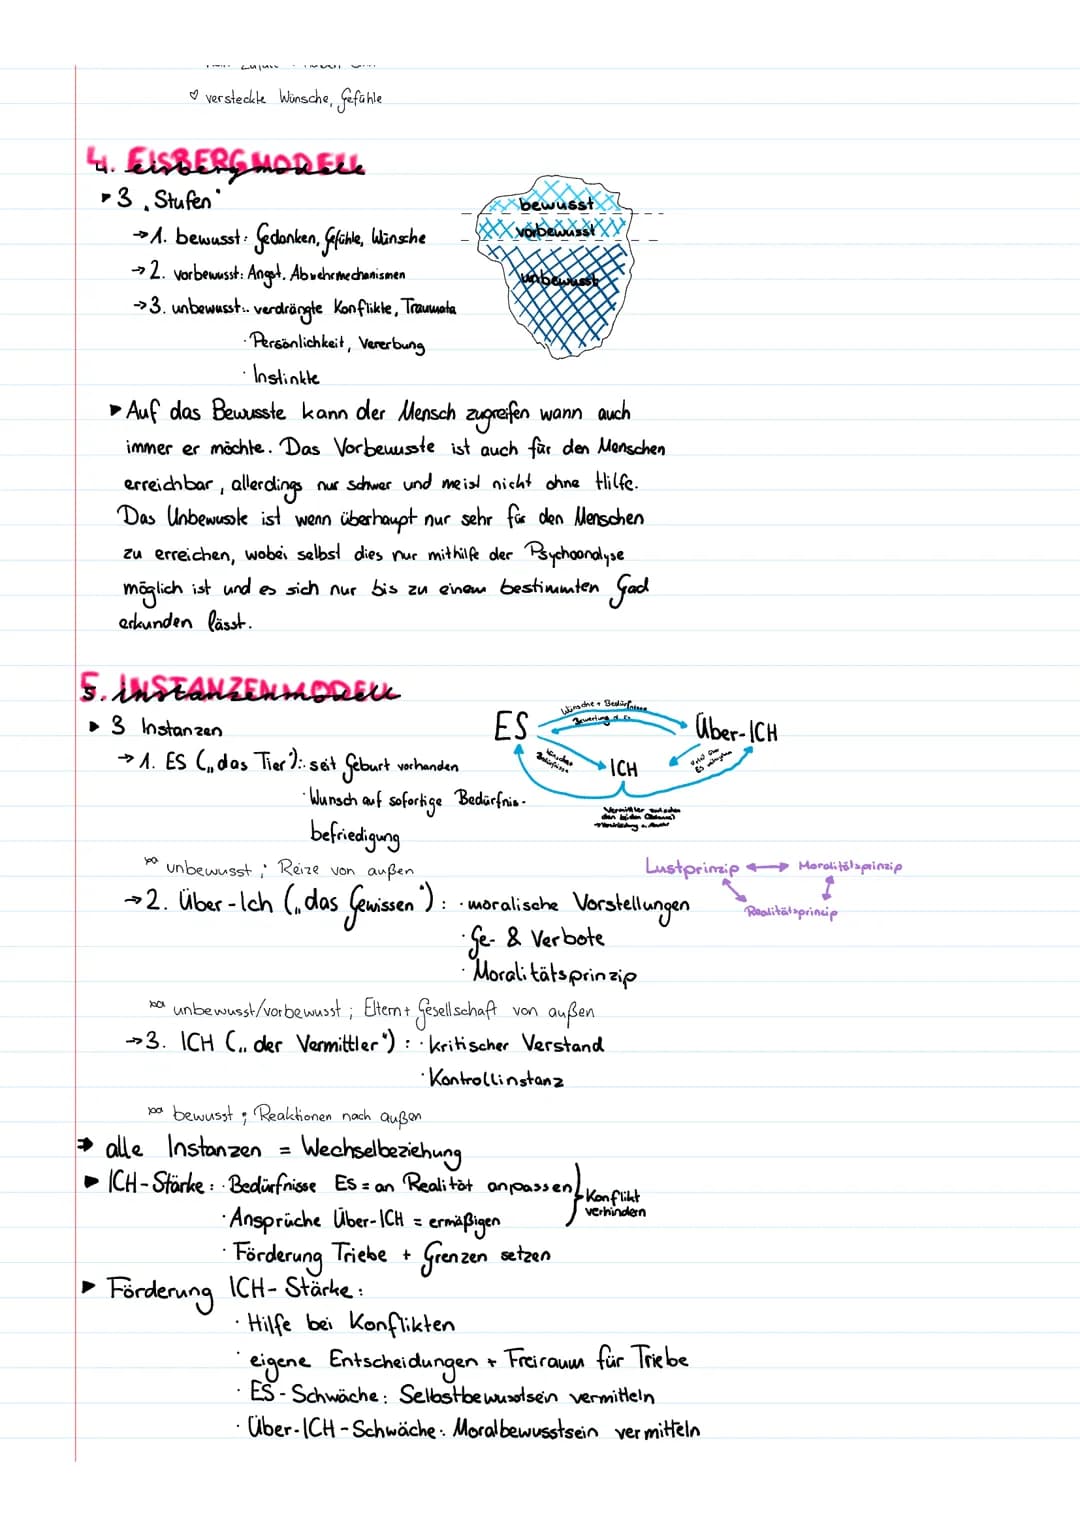 ♡ versteckte Wünsche, Gefühle
4. EISBERGMODELL
eisbergmodell
▸ 3 „Stufen"
→ 1. bewusst: Gedanken, Gefühle, Wünsche
→ 2. vorbewusst: Angst, Abwehrmechanismen
→ 3. unbewusst: · verdrängte Konflikte, Traumata
· Persönlichkeit, Vererbung
· Instinkte
bewusst
vorbewusst
unbewusst
▸ Auf das Bewusste kann der Mensch zugreifen wann auch
immer er möchte. Das Vorbewusste ist auch für den Menschen
erreichbar, allerdings nur schwer und meist nicht ohne Hilfe.
Das Unbewusste ist wenn überhaupt nur sehr für den Menschen
zu erreichen, wobei selbst dies nur mithilfe der Psychoanalyse
möglich ist und es sich nur bis zu einem bestimmten Gad
erkunden lässt.
5. INSTANZENMODELL
instanzenmodell
▸ 3 Instanzen
→ 1. ES („das Tier"): · seit Geburt vorhanden
· Wunsch auf sofortige Bedürfnis-
befriedigung
unbewusst ; Reize von außen
ES
Wünsche + Bedürfnisse
Bewertung d. Es
Über-ICH
Wünsche
Bedürfnisse
ICH
Vermittler zwischen
den beiden
Lustprinzip ↔ Moralitätsprinzip
Realitätsprincip
→ 2. Über-Ich („das Gewissen"): · moralische Vorstellungen
· Ge- & Verbote
· Moralitätsprinzip
unbewusst/vorbewusst ; Eltern + Gesellschaft von außen
→ 3. ICH („der Vermittler"): · kritischer Verstand
· Kontrollinstanz
bewusst ; Reaktionen nach außen
→ alle Instanzen = Wechselbeziehung
▸ ICH-Stärke: · Bedürfnisse ES = an Realität anpassen
· Ansprüche Über-ICH = ermäßigen
Konflikt
verhindern
· Förderung Triebe + Grenzen setzen
▸ Förderung ICH-Stärke:
· Hilfe bei Konflikten
· eigene Entscheidungen + Freiraum für Triebe
· ES-Schwäche: Selbstbewusstsein vermitteln
· Über-ICH-Schwäche: Moralbewusstsein vermitteln